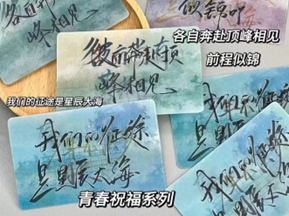 各自奔赴
峰相见
似锦
彼此奔赴顶
峰相见
各自奔赴顶峰相见
前程似锦
我们的征途是星辰大海
我们的征途
是星辰大海
我们的征途
是星辰大海
青春祝福系列